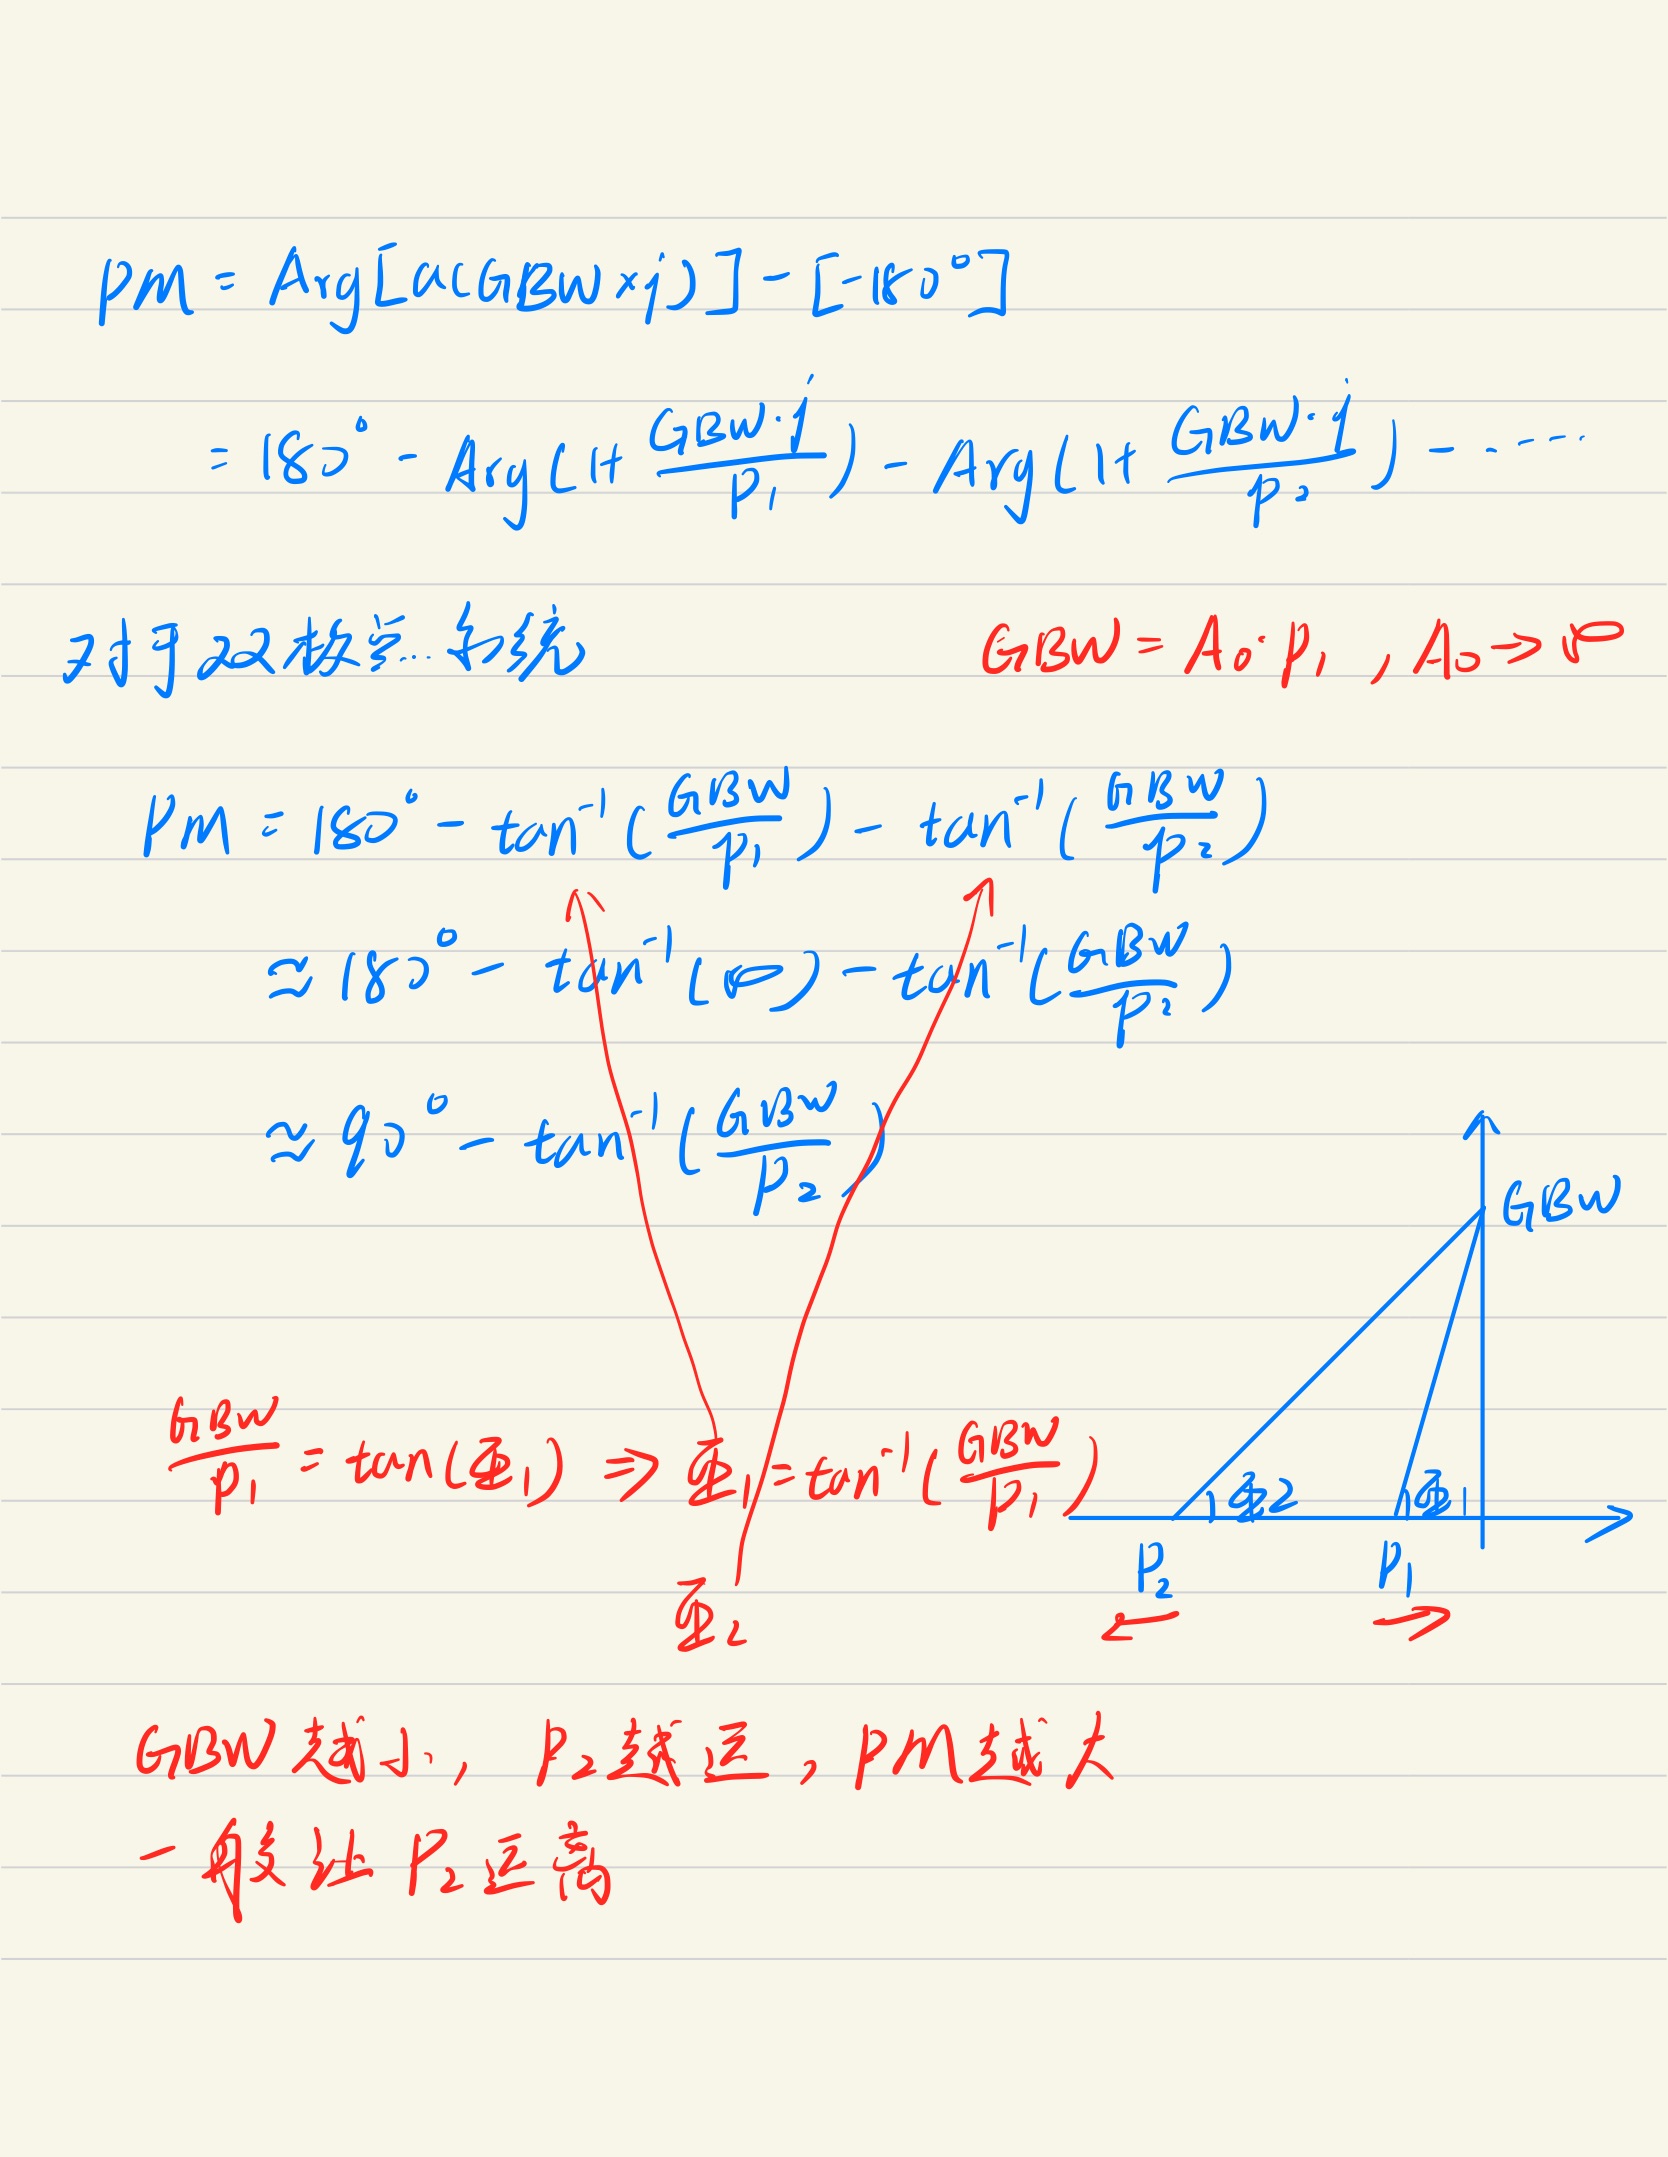 PM = Arg[a(GBW×j)] - [-180°]
= 180° - Arg(1+ GBW·j/P₁) - Arg(1+ GBW·j/P₂) - ·····
对于双极点系统
GBW = A₀·P₁ , A₀ → ∞
PM = 180° - tan⁻¹(GBW/P₁) - tan⁻¹(GBW/P₂)
≈ 180° - tan⁻¹(∞) - tan⁻¹(GBW/P₂)
≈ 90° - tan⁻¹(GBW/P₂)
GBW
GBW/P₁ = tan(Φ₁) ⇒ Φ₁ = tan⁻¹(GBW/P₁)
Φ2 Φ₁
P₂ P₁
Φ₂
GBW越小, P₂越远, PM越大
一般让P₂远离